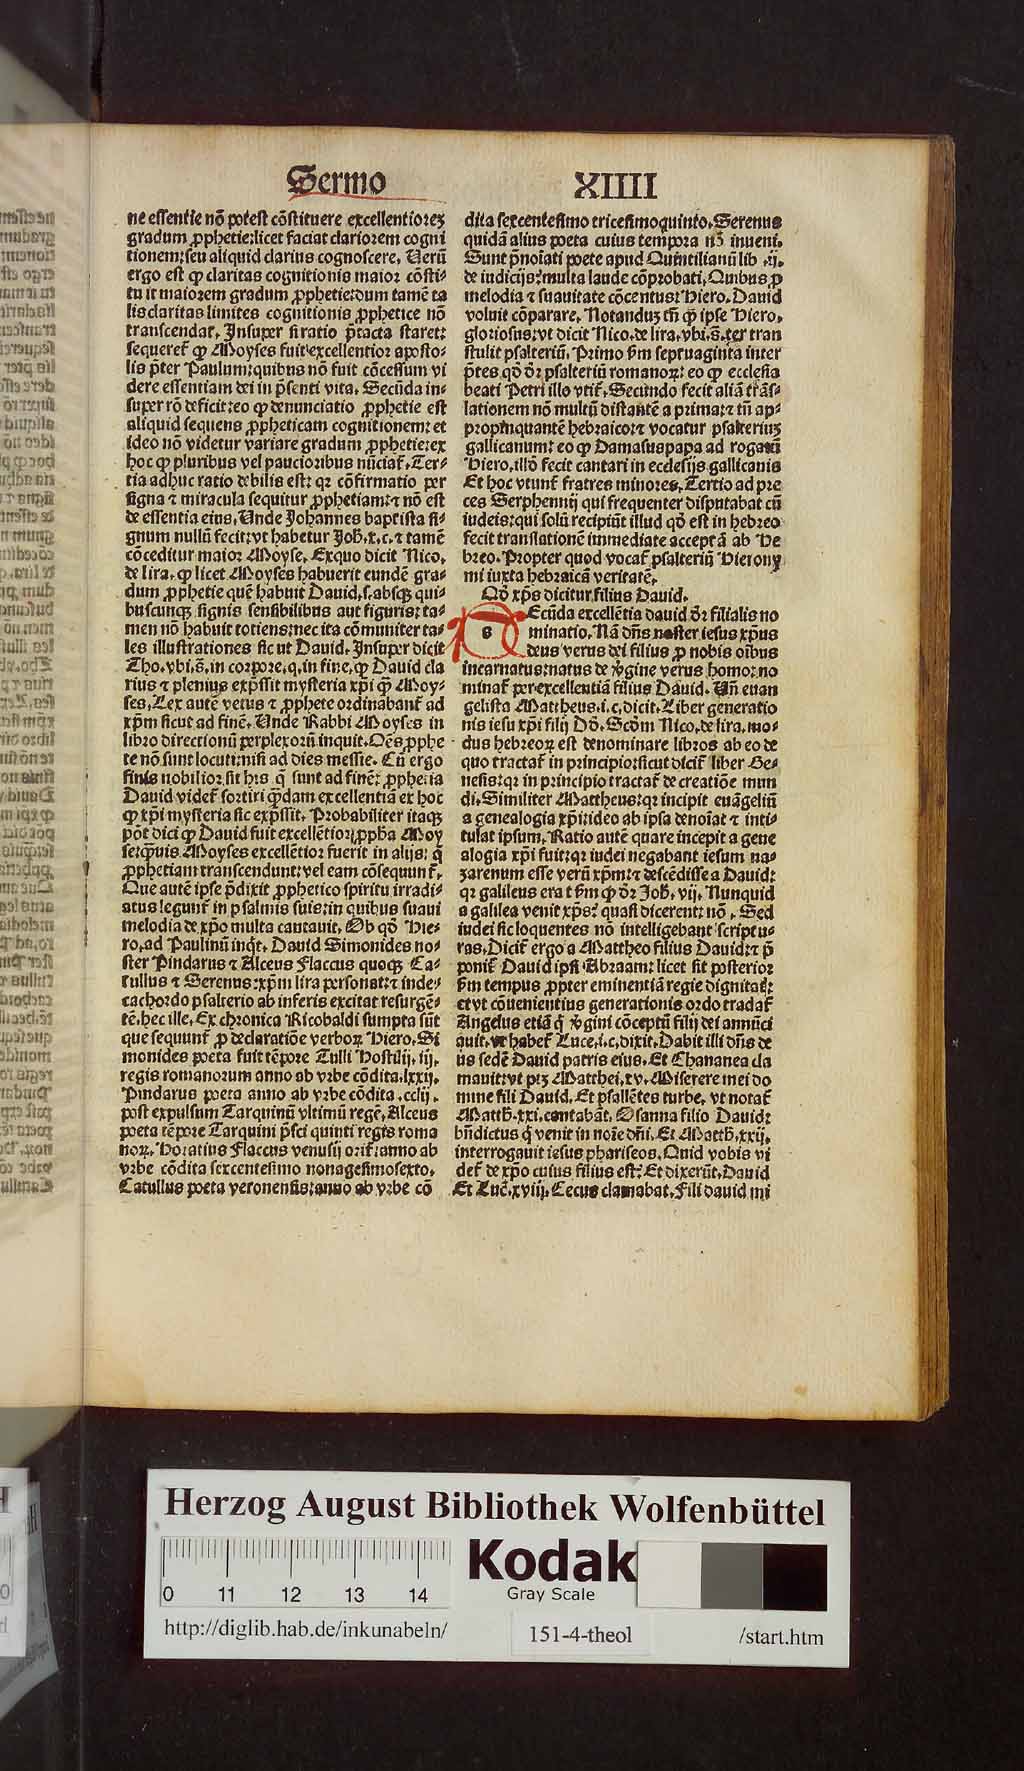 Sermo XIIII
ne essentie nō potest cōstituere excellentiorez
gradum ꝓphetie: licet faciat clariorem cogni
tionem: seu aliquid clarius cognoscere. Verū
ergo est ꝙ claritas cognitionis maior cōsti-
tuit maiorem gradum ꝓphetie: dum tamē ta
lis claritas limites cognitionis ꝓphetice nō
transcendat. Insuper si ratio p̄tacta staret:
sequeret̄ ꝙ Moyses fuit excellentior aposto-
lis p̄ter Paulum: quibus nō fuit cōcessum vi
dere essentiam dei in p̄senti vita. Secūda in-
super rō deficit: eo ꝙ denunciatio ꝓphetie est
aliquid sequens ꝓpheticam cognitionem: et
ideo nō videtur variare gradum ꝓphetie: ex
hoc ꝙ pluribus vel paucioribus nūciat̄. Ter-
tia adhuc ratio debilis est: qꝛ cōfirmatio per
signa ⁊ miracula sequitur ꝓphetiam: ⁊ nō est
de essentia eius. Unde Johannes baptista si-
gnum nullū fecit: vt habetur Joh̄. x. c. ⁊ tamē
cōceditur maior Moyse. Ex quo dicit Nico.
de lira. ꝙ licet Moyses habuerit eundē gra-
dum ꝓphetie quē habuit Dauid. s. absqꝫ qui-
buscunqꝫ signis sensibilibus aut figuris: ta-
men nō habuit totiens: nec ita cōmuniter ta-
les illustrationes sicut Dauid. Insuper dicit
Tho. vbi. s̄. in corpore. q. in fine. ꝙ Dauid cla
rius ⁊ plenius exp̄ssit mysteria xp̄i ꝙ̄ Moy-
ses. Lex autē vetus ⁊ ꝓphete ordinabant̄ ad
xp̄m sicut ad finē. Unde Rabbi Moyses in
libro directionū perplexorū inquit. Oēs ꝓphe
te nō sunt locuti: nisi ad dies messie. Cū ergo
finis nobilior sit his q̄ sunt ad finē: ꝓphetia
Dauid videt̄ sortiri q̄dam excellentiā ex hoc
ꝙ xp̄i mysteria sic exp̄ssit. Probabiliter itaqꝫ
pōt dici ꝙ Dauid fuit excellētior ꝓph̄a Moy
se: q̄uis Moyses excellētior fuerit in alijs: q̄
ꝓphetiam transcendunt: vel eam cōsequunt̄.
Que autē ipse p̄dixit ꝓphetico spiritu irradi-
atus legunt̄ in psalmis suis: in quibus suaui
melodia de xp̄o multa cantauit. Ob qō Hie-
ro. ad Paulinū inq̄t. Dauid Simonides no-
ster Pindarus ⁊ Alceus Flaccus quoqꝫ Ca-
tullus ⁊ Serenus: xp̄m lira personat: ⁊ in de-
cachordo psalterio ab inferis excitat resurgē-
tē. hec ille. Ex chronica Ricobaldi sumpta sūt
que sequunt̄ ꝓ declaratiōe verboꝝ Hiero. Si
monides poeta fuit tēpore Tulli Hostilij. iij.
regis romanorum anno ab vrbe cōdita. lxxij.
Pindarus poeta anno ab vrbe cōdita. cclij.
post expulsum Tarquinū vltimū regē. Alceus
poeta tēpore Tarquini p̄sci quinti regis roma
noꝝ. Horatius Flaccus venusij orit̄: anno ab
vrbe cōdita sexcentesimo nonagesimosexto.
Catullus poeta veronensis: anno ab vrbe cō
dita sexcentesimo tricesimoquinto. Serenus
quidā alius poeta cuius tempora nō inueni.
Sunt p̄noīati poete apud Quintilianū lib. ij.
de iudicijs: multa laude cōprobati. Quibus ꝓ
melodia ⁊ suauitate cōcentus: Hiero. Dauid
voluit cōparare. Notanduz tn̄ ꝙ ipse Hiero.
gloriosus: vt dicit Nico. de lira. vbi. s̄. ter tran
stulit psalteriū. Primo s̄m septuaginta inter
p̄tes qō d̄r psalteriū romanoꝝ: eo ꝙ ecclesia
beati Petri illo vtit̄. Secundo fecit aliā trās-
lationem nō multū distantē a prima: ⁊ tn̄ ap-
propinquantē hebraico: ⁊ vocatur psalteriuz
gallicanum: eo ꝙ Damasus papa ad rogatū
Hiero. illō fecit cantari in ecclesijs gallicanis
Et hoc vtunt̄ fratres minores. Tertio ad pre
ces Serphennij qui frequenter disputabat cū
iudeis: qui solū recipiūt illud qō est in hebreo
fecit translationē immediate acceptā ab He
breo. Propter quod vocat̄ psalteriū Hierony
mi iuxta hebraicā veritatē.
Qō xp̄s dicitur filius Dauid.
s Ecūda excellētia dauid d̄r filialis no
minatio. Nā dn̄s noster iesus xp̄us
deus verus dei filius ꝓ nobis oībus
incarnatus: natus de v̄gine verus homo: no
minat̄ per excellentiā filius Dauid. Un̄ euan
gelista Mattheus. i. c. dicit. Liber generatio
nis iesu xp̄i filij Dō. Scd̄m Nico. de lira. mo-
dus hebreoꝝ est denominare libros ab eo de
quo tractat̄ in principio: sicut dicit̄ liber Ge-
nesis: qꝛ in principio tractat̄ de creatiōe mun
di. Similiter Mattheus: qꝛ incipit euāgeliū
a genealogia xp̄i: ideo ab ipsa denoīat ⁊ inti-
tulat ipsum. Ratio autē quare incepit a gene
alogia xp̄i fuit: qꝛ iudei negabant iesum na-
zarenum esse verū xp̄m: ⁊ descēdisse a Dauid:
qꝛ galileus erat s̄m ꝙ d̄r Joh̄. vij. Nunquid
a galilea venit xp̄s? quasi dicerent: nō. Sed
iudei sic loquentes nō intelligebant scriptu-
ras. Dicit̄ ergo a Mattheo filius Dauid: ⁊ p̄
ponit̄ Dauid ipsi Abraam: licet sit posterior
s̄m tempus ꝓpter eminentiā regie dignitat̄:
et vt cōuenientius generationis ordo tradat̄
Angelus etiā q̄ v̄gini cōceptū filij dei annūci
auit. vt habet̄ Luce. i. c. dixit. Dabit illi dn̄s de
us sedē Dauid patris eius. Et Chananea cla
mauit: vt pꝫ Matthei. xv. Miserere mei do
mine fili Dauid. Et psallētes turbe. vt notat̄
Matth̄. xxi. cantabāt. Osanna filio Dauid:
bn̄dictus q̄ venit in noīe dn̄i. Et Matth̄. xxij.
interrogauit iesus phariseos. Quid vobis vi
det̄ de xp̄o cuius filius est? Et dixerūt. Dauid
Et Luc̄. xviij. Cecus clamabat. Fili dauid mi
Herzog August Bibliothek Wolfenbüttel
0 11 12 13 14
Kodak
Gray Scale
http://diglib.hab.de/inkunabeln/
151-4-theol
/start.htm